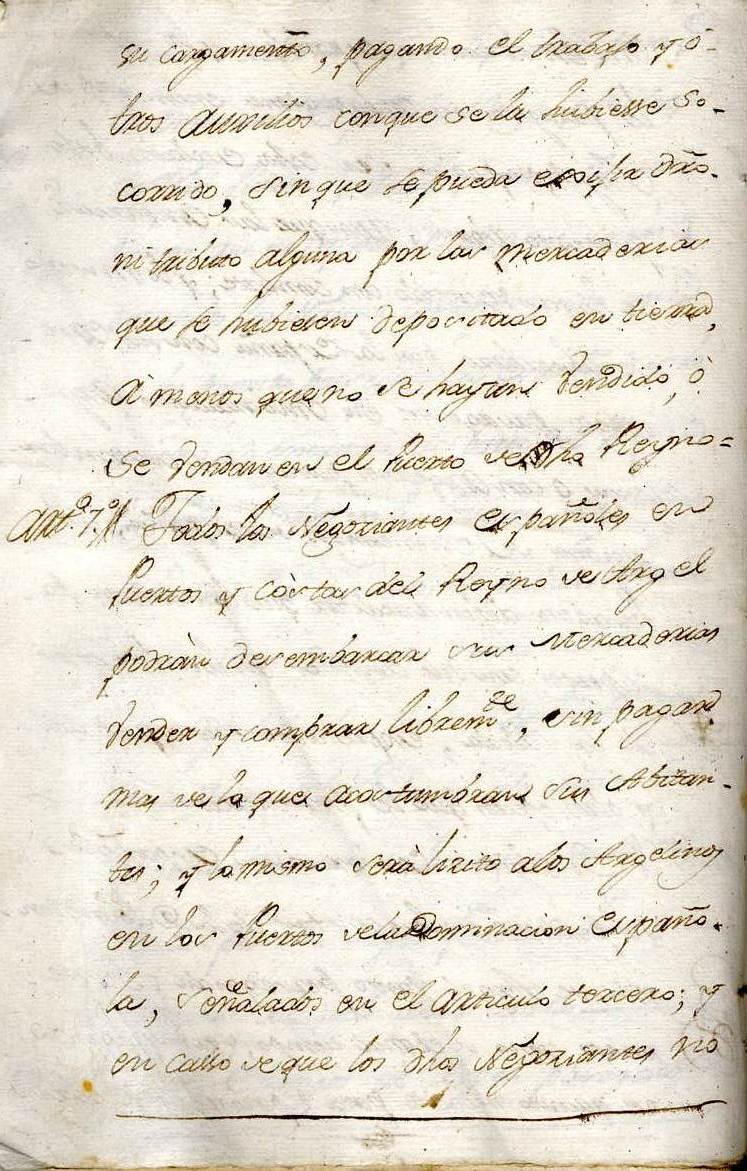 su cargamento, pagando el trabajo y o-
tros auxilios conque se la hubiesse so-
corrido, sin que se pueda exsijir dr̃o.
ni tributo alguno por las mercaderias
que se hubiesen depositado en tierra,
à menos que no se hayan vendido, ò
se vendan en el Puerto de dho Reyno=
Art.º 7.º // Todos los Negociantes españoles en
Puertos y còstas del Reyno de Argel
podràn desembarcar sus Mercaderias
vender y comprar librem.te, sin pagar
mas de lo que acostumbran sus Abitan-
tes; y lo mismo serà licito a los Argelinos
en los Puertos de la Dominacion españo-
la, señalados en el articulo tercero; y
en casso de que los dhos Negociantes no